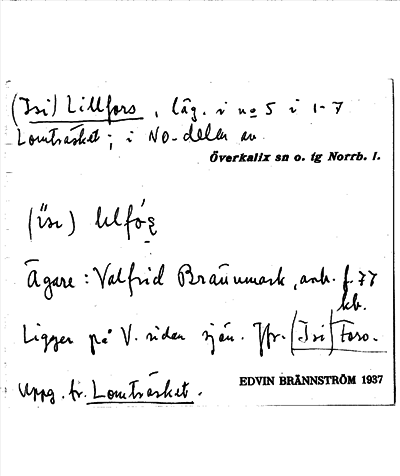 (Isi) Lillfors, läg. i no 5 i 1-7
Lomträsket; i NO-delen av
Överkalix sn o. tg Norrb. l.
(ìsi)
Ägare: Valfrid Brännmark, anh. f. 77
Ligger på V. sidan sjön. Jfr. (Isi) Fors.
Uppg. fr. Lomträsket.
EDVIN BRÄNNSTRÖM 1937